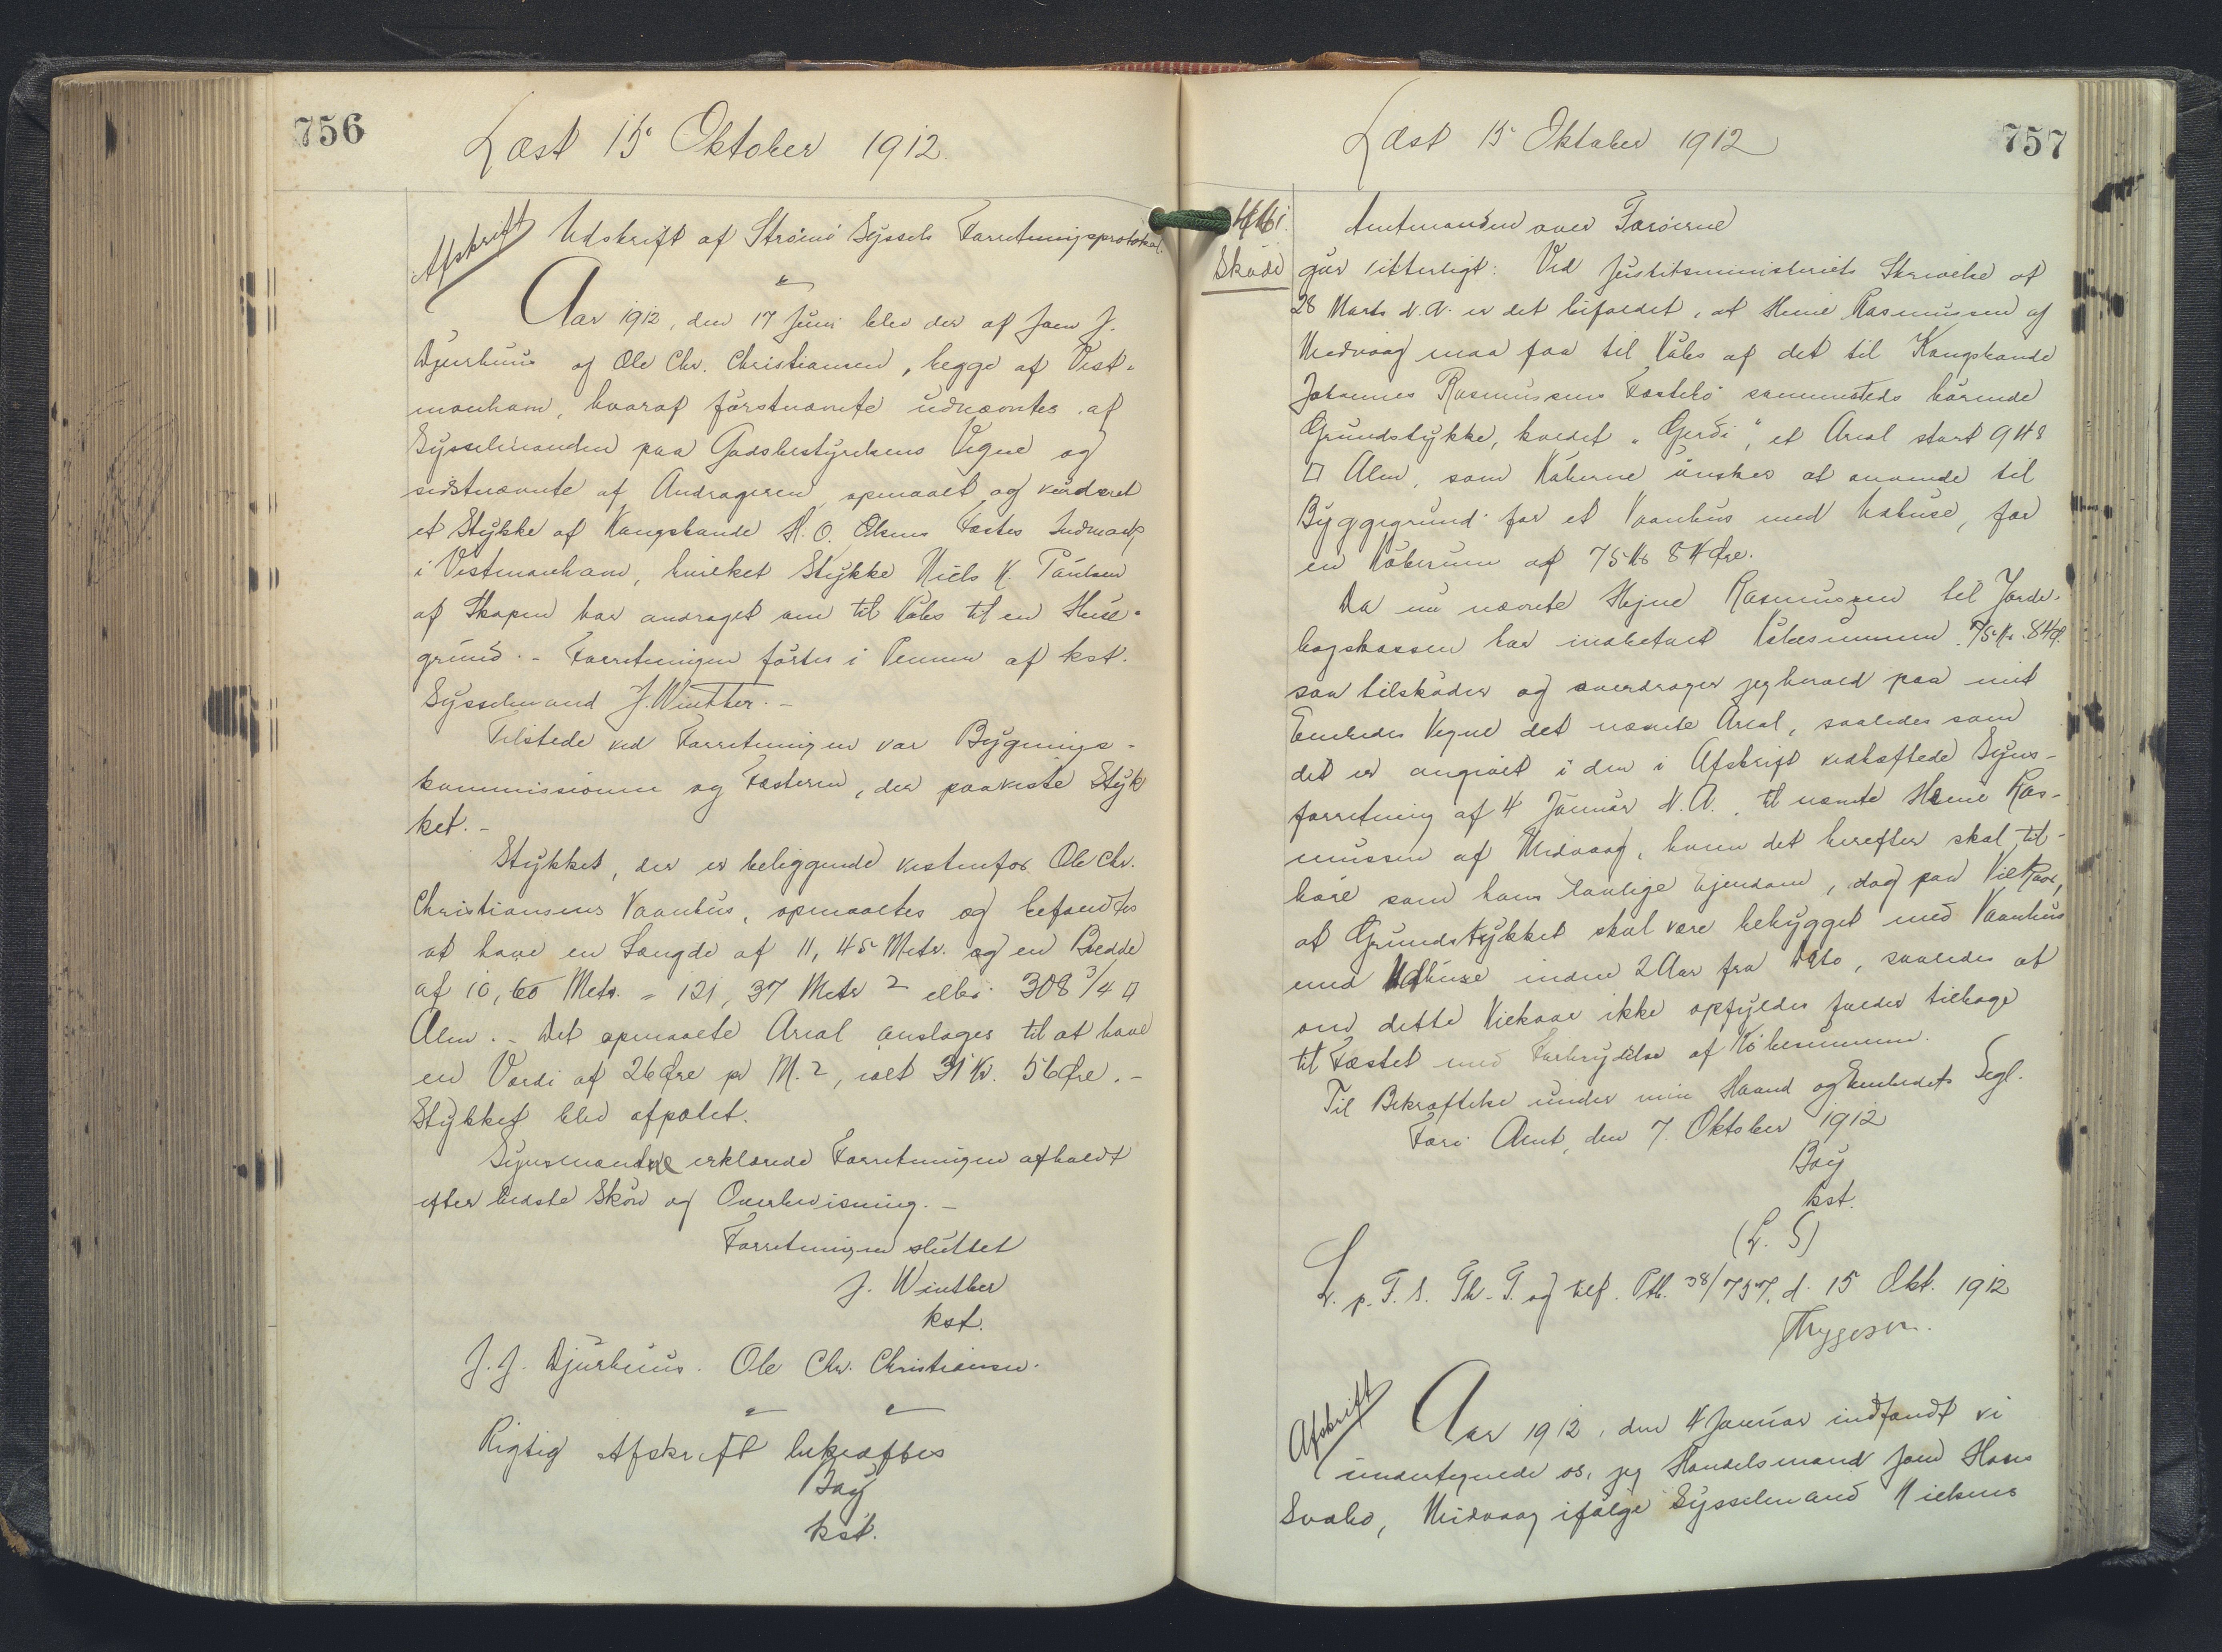 756
Læst 15 Oktober 1912.
Afskrift
Udskrift af Strømø Syssels Forretningsprotokol.
Aar 1912, den 17 Juni blev der af Joen J.
Djurhuus og Ole Chr. Christiansen, begge af Vest-
manhavn, hvoraf førstnævnte udnævntes af
Sysselmanden paa Godsbestyrelsens Vegne og
sidstnævnte af Andrageren, opmaalt og vurderet
et Stykke af Kongsbonde H. O. Olsens Fæstes Indmark
i Vestmanhavn, hvilket Stykke Niels K. Poulsen
af Skopen har andraget om til Købs til en Huse-
grund. - Forretningen førtes i Pennen af kst.
Sysselmand J. Winther. -
Tilstede ved Forretningen var Bygnings-
kommissionen og Fæsteren, der paaviste Styk
ket. -
Stykket, der er beliggende vestenfor Ole Chr.
Christiansens Vaanhus, opmaaltes og befandtes
at have en Længde af 11,45 Metr. og en Bredde
af 10,60 Metr. = 121,37 Metr 2 eller 308 3/4 □
Alen. - Det opmaalte Areal ansloges til at have
en Værdi af 26 Øre pr M. 2, ialt 31 Kr. 56 Øre. -
Stykket blev afpælet.
Synsmændene erklærede Forretningen afholdt
efter bedste Skøn og Overbevisning. -
Forretningen sluttet
J. Winther
kst.
J. J. Djurhuus. Ole Chr. Christiansen.
Rigtig Afskrift bekræftes
Bay
kst.
757
Læst 15 Oktober 1912
Skøde
Amtmanden over Færøerne
gør vitterligt: Ved Justitsministeriets Skrivelse af
28 Marts d. A. er det bifaldet, at Heine Rasmussen af
Midvaag maa faa til Købs af det til Kongsbonde
Johannes Rasmussens Fæstebo sammesteds hørende
Grundstykke, kaldet "Gerdi", et Areal stort 948
□ Alen, som Køberne ønsker at anvende til
Byggegrund for et Vaanhus med Udhuse, for
en Købesum af 75 Kr 84 Øre.
Da nu nævnte Hejne Rasmussen til Jorde-
bogskassen har indbetalt Købesummen 75 Kr. 84 Ø.
saa tilskøder og overdrager jeg herved paa mit
Embedes Vegne det nævnte Areal, saaledes som
det er angivet i den i Afskrift vedhæftede Syns-
forretning af 4 Januar d. A. til nævnte Heine Ras-
mussen af Midvaag, hvem det herefter skal til-
høre som hans lovlige Ejendom, dog paa Vilkaar,
at Grundstykket skal være bebygget med Vaanhus
med Udhuse inden 2 Aar fra Dato, saaledes at
om dette Vilkaar ikke opfyldes falder tilbage
til Fæstet med Forbrydelse af Købesummen.
Til Bekræftelse under min Haand og Embedets Segl.
Færø Amt, den 7. Oktober 1912
Bay
kst.
(L. S)
L. p. F. S. Th. T. og ref. Ptl. 38/757, d. 15 Okt. 1912
Thygesen.
Afskrift
Aar 1912, den 4 Januar indfandt vi
undertegnede os, jeg Handelsmand Joen Hans
Svabo, Midvaag ifølge Sysselmand Nielsens